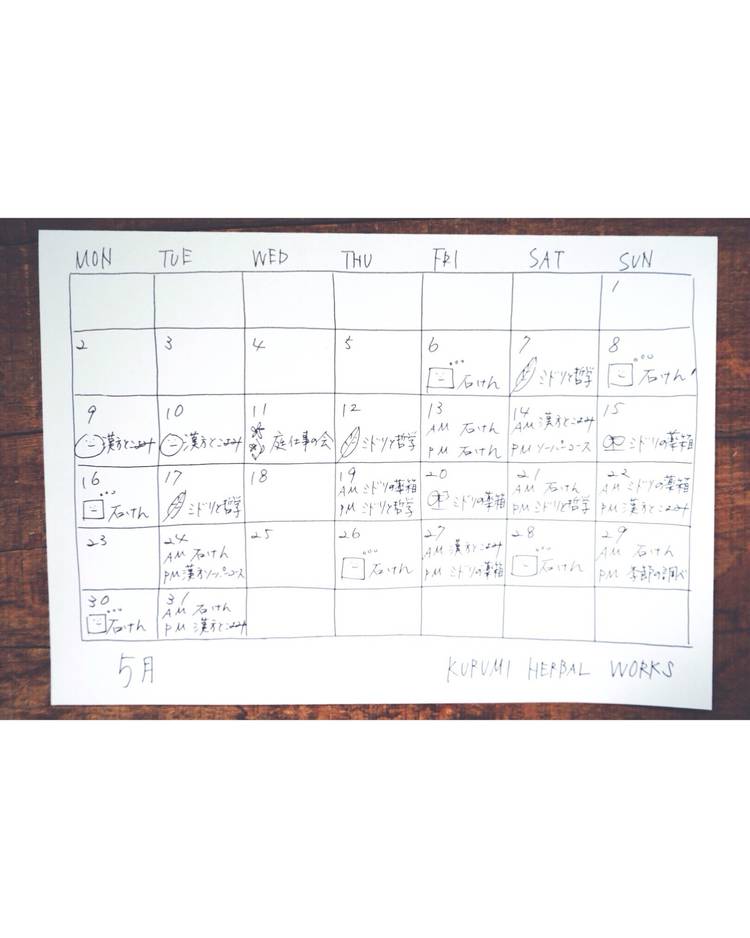 MON TUE WED THU FRI SAT SUN
1
2 3 4 5 6 7 8
石けん ミドリと哲学 石けん
9 10 11 12 13 14 15
漢方とこよみ 漢方とこよみ 庭仕事の会 ミドリと哲学 AM 石けん AM 漢方とこよみ ミドリの薬箱
PM 石けん PM ソーパーコース
16 17 18 19 20 21 22
石けん ミドリと哲学 AM ミドリの薬箱 ミドリの薬箱 AM 石けん AM ミドリの薬箱
PM ミドリと哲学 PM ミドリと哲学 PM 漢方とこよみ
23 24 25 26 27 28 29
AM 石けん 石けん AM 漢方とこよみ 石けん AM 石けん
PM 漢方ソーパーコース PM ミドリの薬箱 PM 季節の調べ
30 31
石けん AM 石けん
PM 漢方とこよみ
5月 KURUMI HERBAL WORKS